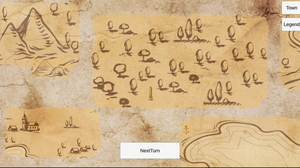 Town
Legend
NextTurn